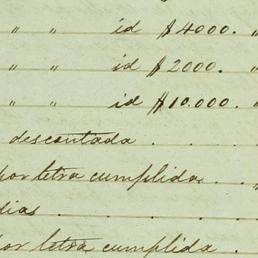 " " id $4000. "
" " id $2000. "
" " id $10.000. "
descontada . . .
por letra cumplidas . . "
dias . . . . .
por letra cumplida .